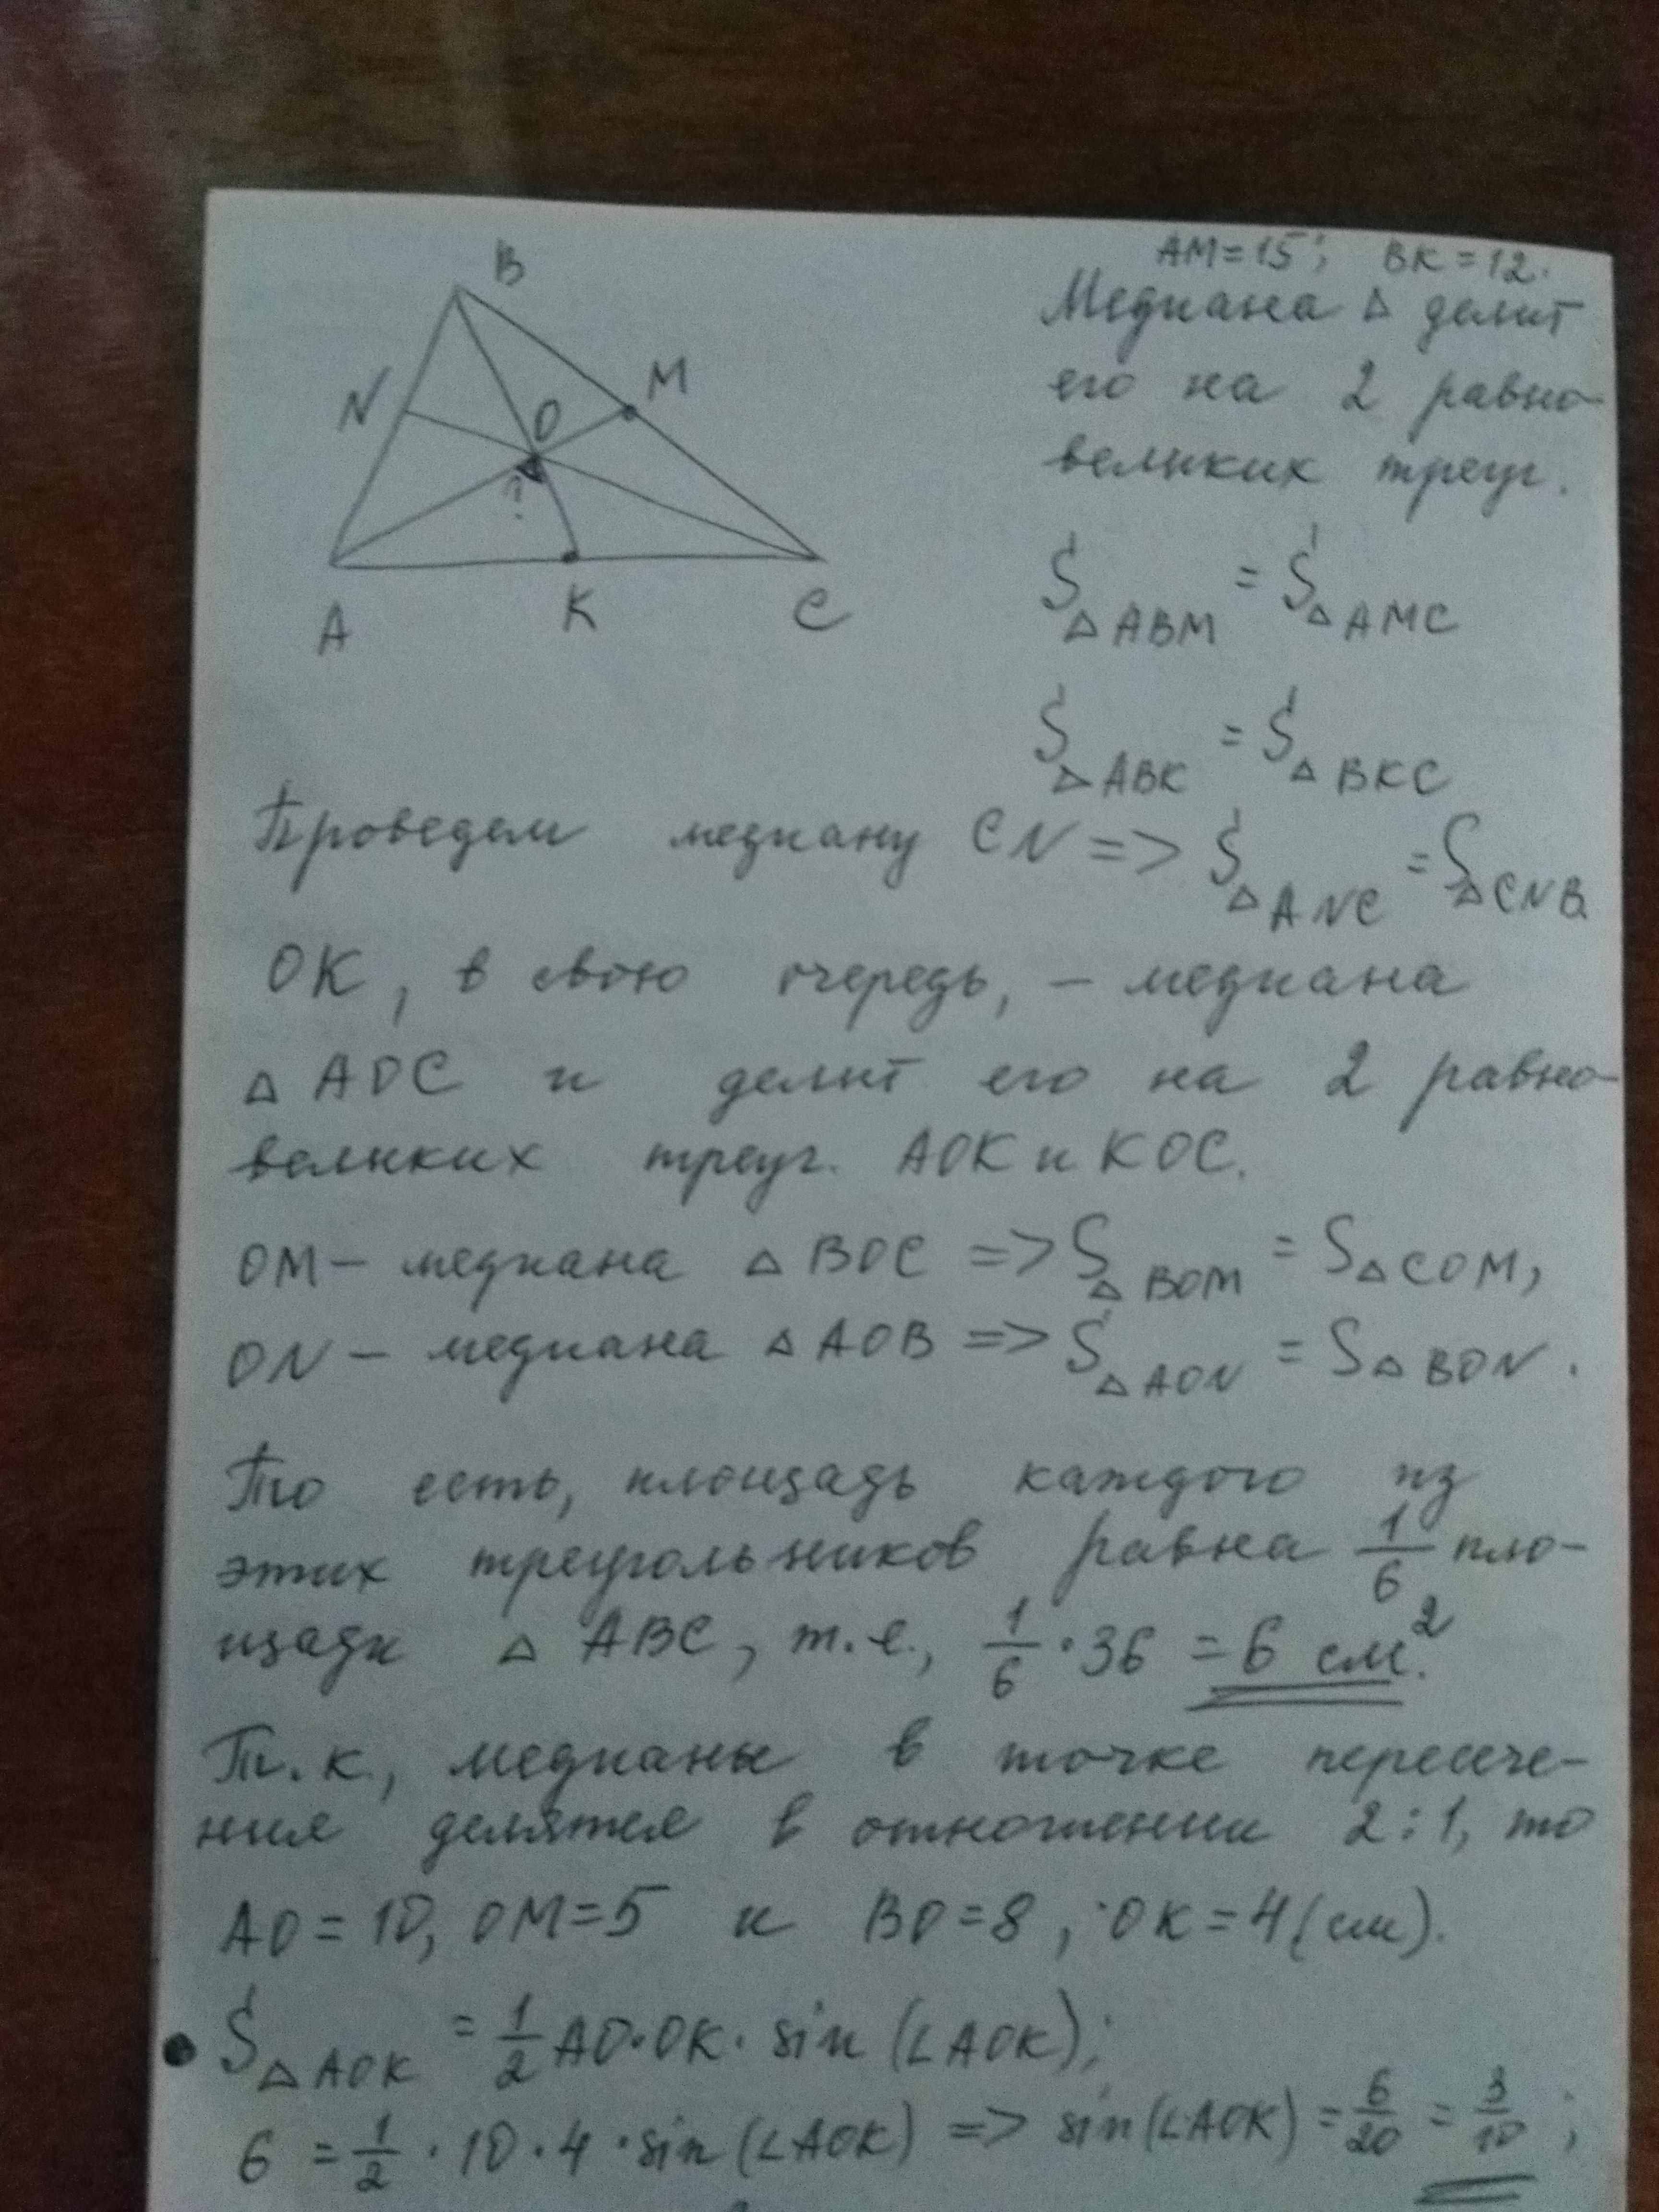 B
N
M
O
?
A
K
C
AM=15; BK=12.
Медиана Δ делит
его на 2 равно-
великих треуг.
S Δ ABM = S Δ AMC
S Δ ABK = S Δ BKC
Проведем медиану CN => S Δ ANC = S Δ CNB.
OK, в свою очередь, – медиана
Δ AOC и делит его на 2 равно-
великих треуг. AOK и KOC.
OM – медиана Δ BOC => S Δ BOM = S Δ COM,
ON – медиана Δ AOB => S Δ AON = S Δ BON.
То есть, площадь каждого из
этих треугольников равна 1/6 пло-
щади Δ ABC, т.е., 1/6 · 36 = 6 см².
Т.к., медианы в точке пересече-
ния делятся в отношении 2:1, то
AO=10, OM=5 и BO=8, OK=4(см).
S Δ AOK = 1/2 AO·OK·sin(∠AOK);
6 = 1/2 · 10 · 4 · sin(∠AOK) => sin(∠AOK) = 6/20 = 3/10;